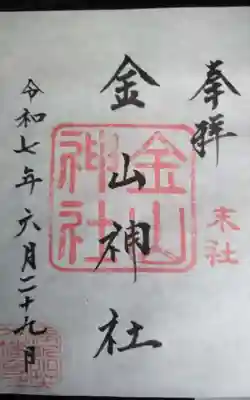 奉拝
末社
金山神社
金山神社
令和七年六月二十九日